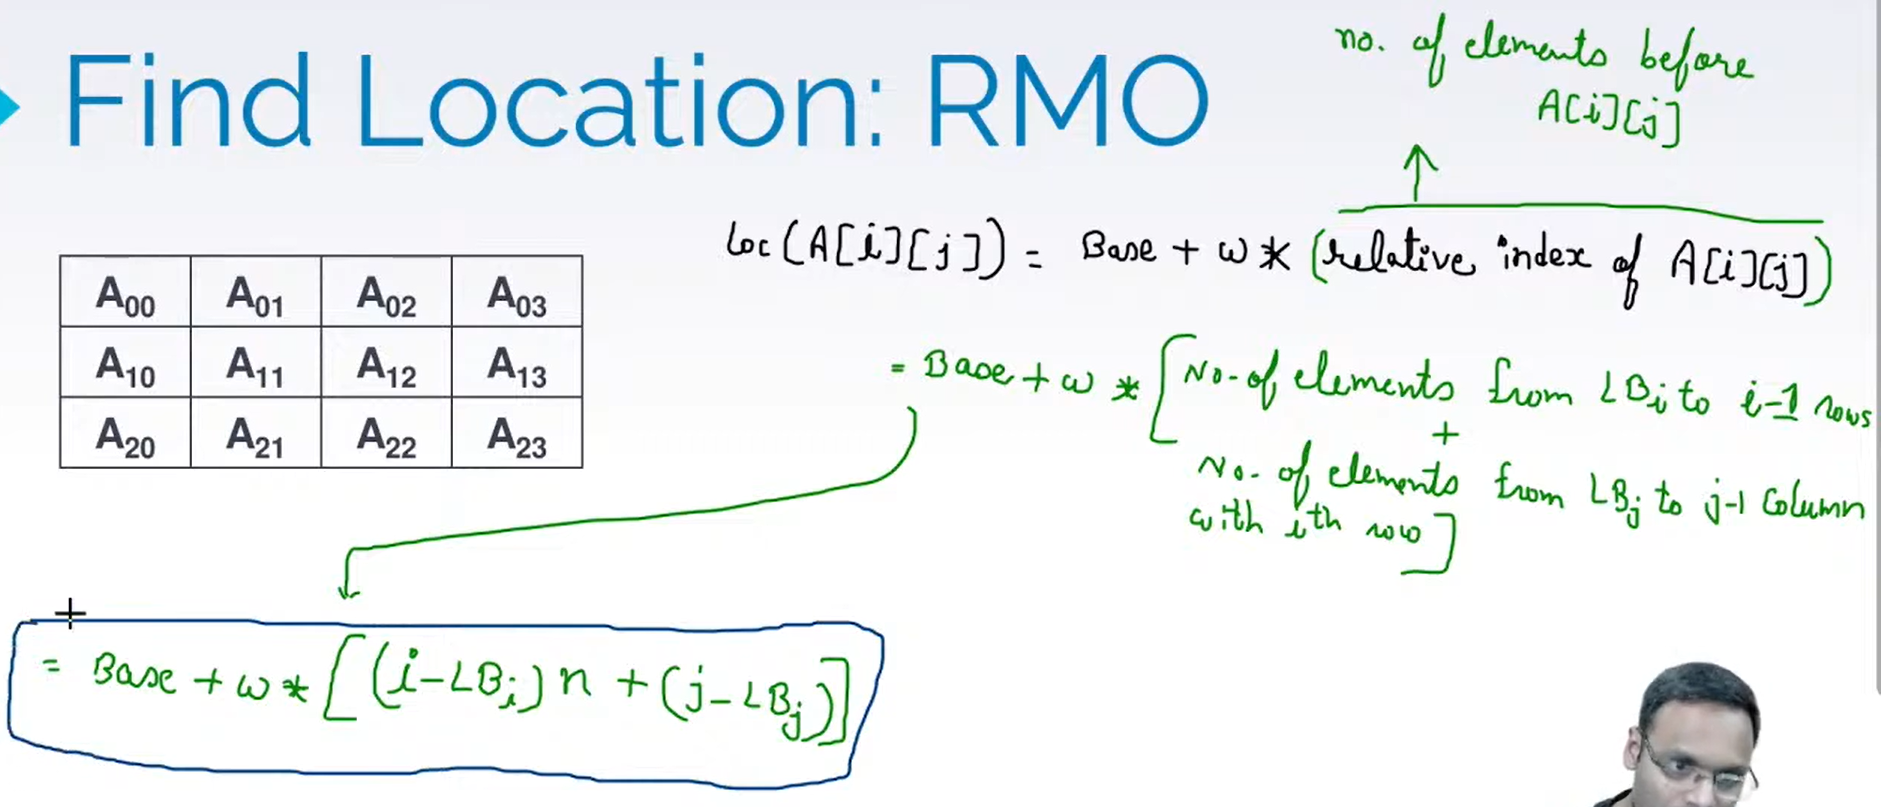 Find Location: RMO
no. of elements before
A[i][j]
Loc(A[i][j]) = Base + w * (relative index of A[i][j])
A00 A01 A02 A03
A10 A11 A12 A13
A20 A21 A22 A23
= Base + w * [No. of elements from LBi to i-1 rows
+
No. of elements from LBj to j-1 column
with ith row]
= Base + w * [(i-LBi)n + (j-LBj)]